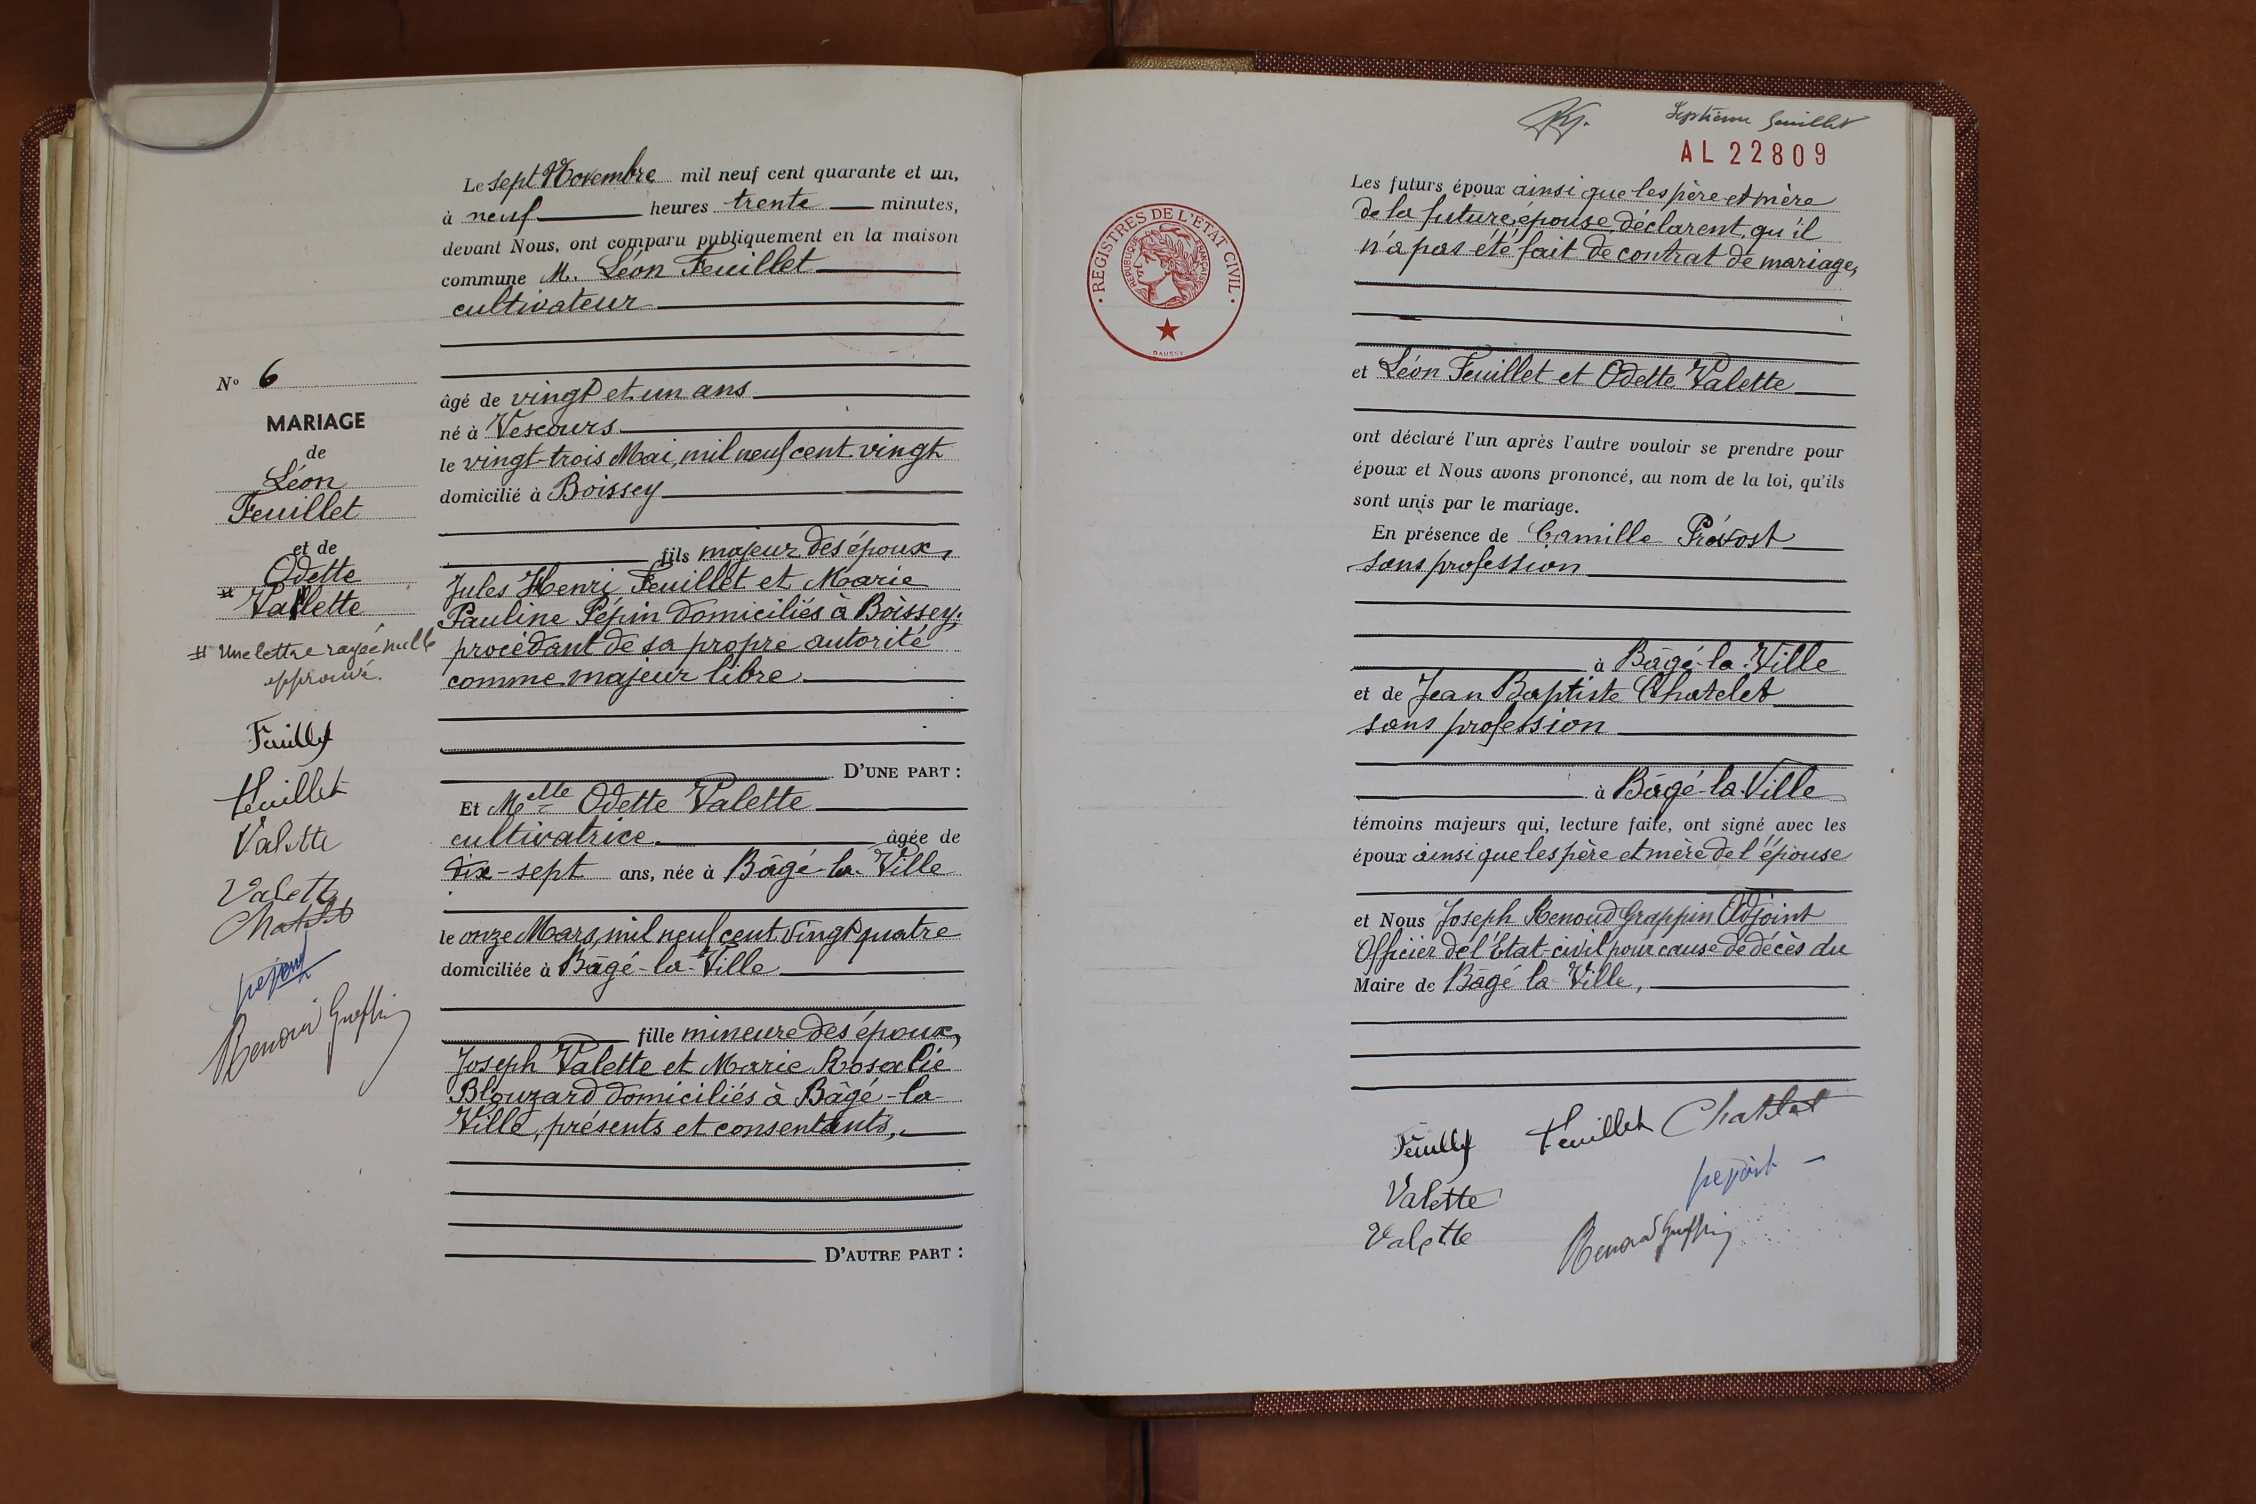 Le sept Novembre mil neuf cent quarante et un,
à neuf heures trente minutes,
devant Nous, ont comparu publiquement en la maison
commune M. Léon Feuillet
cultivateur
âgé de vingt et un ans
né à Vescours
le vingt-trois Mai, mil neuf cent vingt
domicilié à Boissey
fils majeur des époux,
Jules Henri Feuillet et Marie
Pauline Pépin domiciliés à Boissey,
procédant de sa propre autorité
comme majeur libre
D'UNE PART :
Et Melle Odette Valette
cultivatrice âgée de
dix-sept ans, née à Bâgé-la-Ville
le onze Mars, mil neuf cent vingt quatre
domiciliée à Bâgé-la-Ville
fille mineure des époux,
Joseph Valette et Marie Rosalie
Blouzard domiciliés à Bâgé-la-
Ville, présents et consentants,
D'AUTRE PART :
N° 6
MARIAGE
de
Léon
Feuillet
et de
Odette
# Vallette
# Une lettre rayée nulle
approuvé.
Feuillet
Feuillet
Valette
Valette
Chatelet
Renoud Grappin
Septième feuillet
AL 22809
REGISTRES DE L'ÉTAT CIVIL
RÉPUBLIQUE FRANÇAISE
DAUSSY
Les futurs époux ainsi que les père et mère
de la future épouse déclarent qu'il
n'a pas été fait de contrat de mariage,
et Léon Feuillet et Odette Valette
ont déclaré l'un après l'autre vouloir se prendre pour
époux et Nous avons prononcé, au nom de la loi, qu'ils
sont unis par le mariage.
En présence de Camille Prévost
sans profession
à Bâgé-la-Ville
et de Jean Baptiste Chatelet
sans profession
à Bâgé-la-Ville
témoins majeurs qui, lecture faite, ont signé avec les
époux ainsi que les père et mère de l'épouse
et Nous Joseph Renoud Grappin Adjoint
Officier de l'État-civil pour cause de décès du
Maire de Bâgé la Ville,
Feuillet Feuillet Chatelet
Valette
Valette
Renoud Grappin